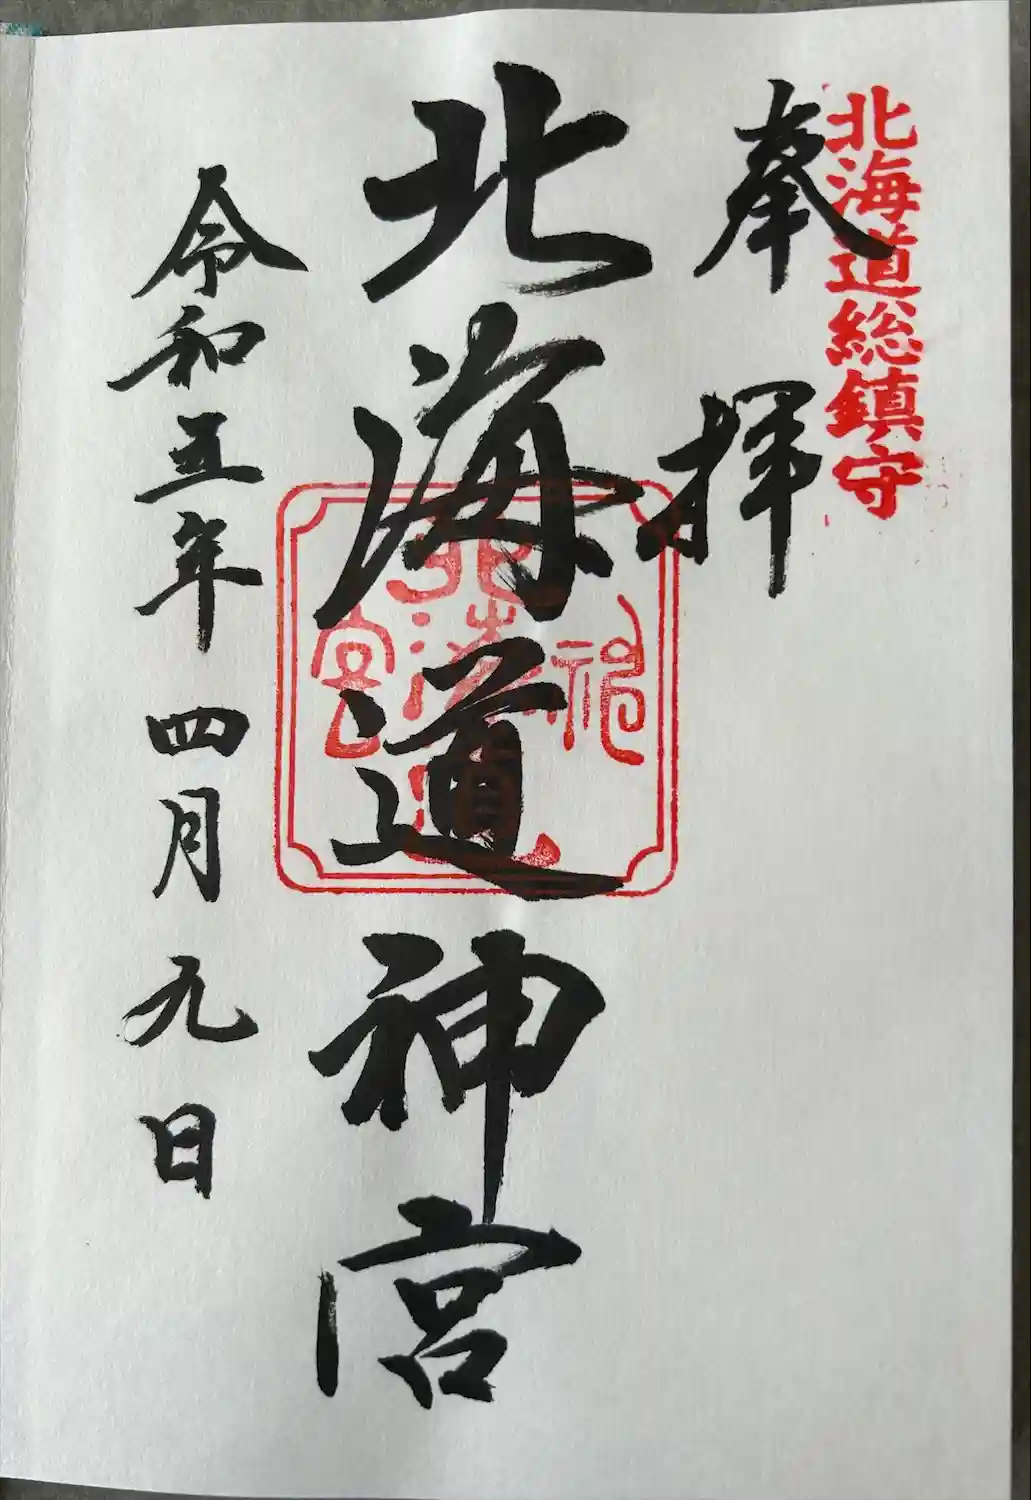 北海道総鎮守
奉拝
北海道神宮
北海道神宮
令和五年四月九日